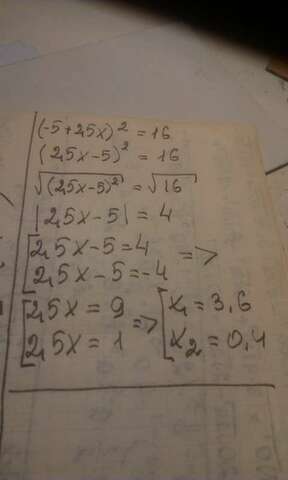 (-5+2,5x)² = 16
(2,5x-5)² = 16
√(2,5x-5)² = √16
|2,5x-5| = 4
[2,5x-5=4
[2,5x-5=-4 =>
[2,5x = 9
[2,5x = 1 => [x₁ = 3,6
[x₂ = 0,4